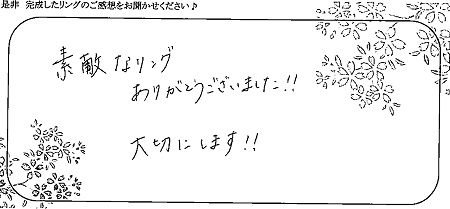 是非 完成したリングのご感想をお聞かせください♪
素敵なリング
ありがとうございました!!
大切にします!!